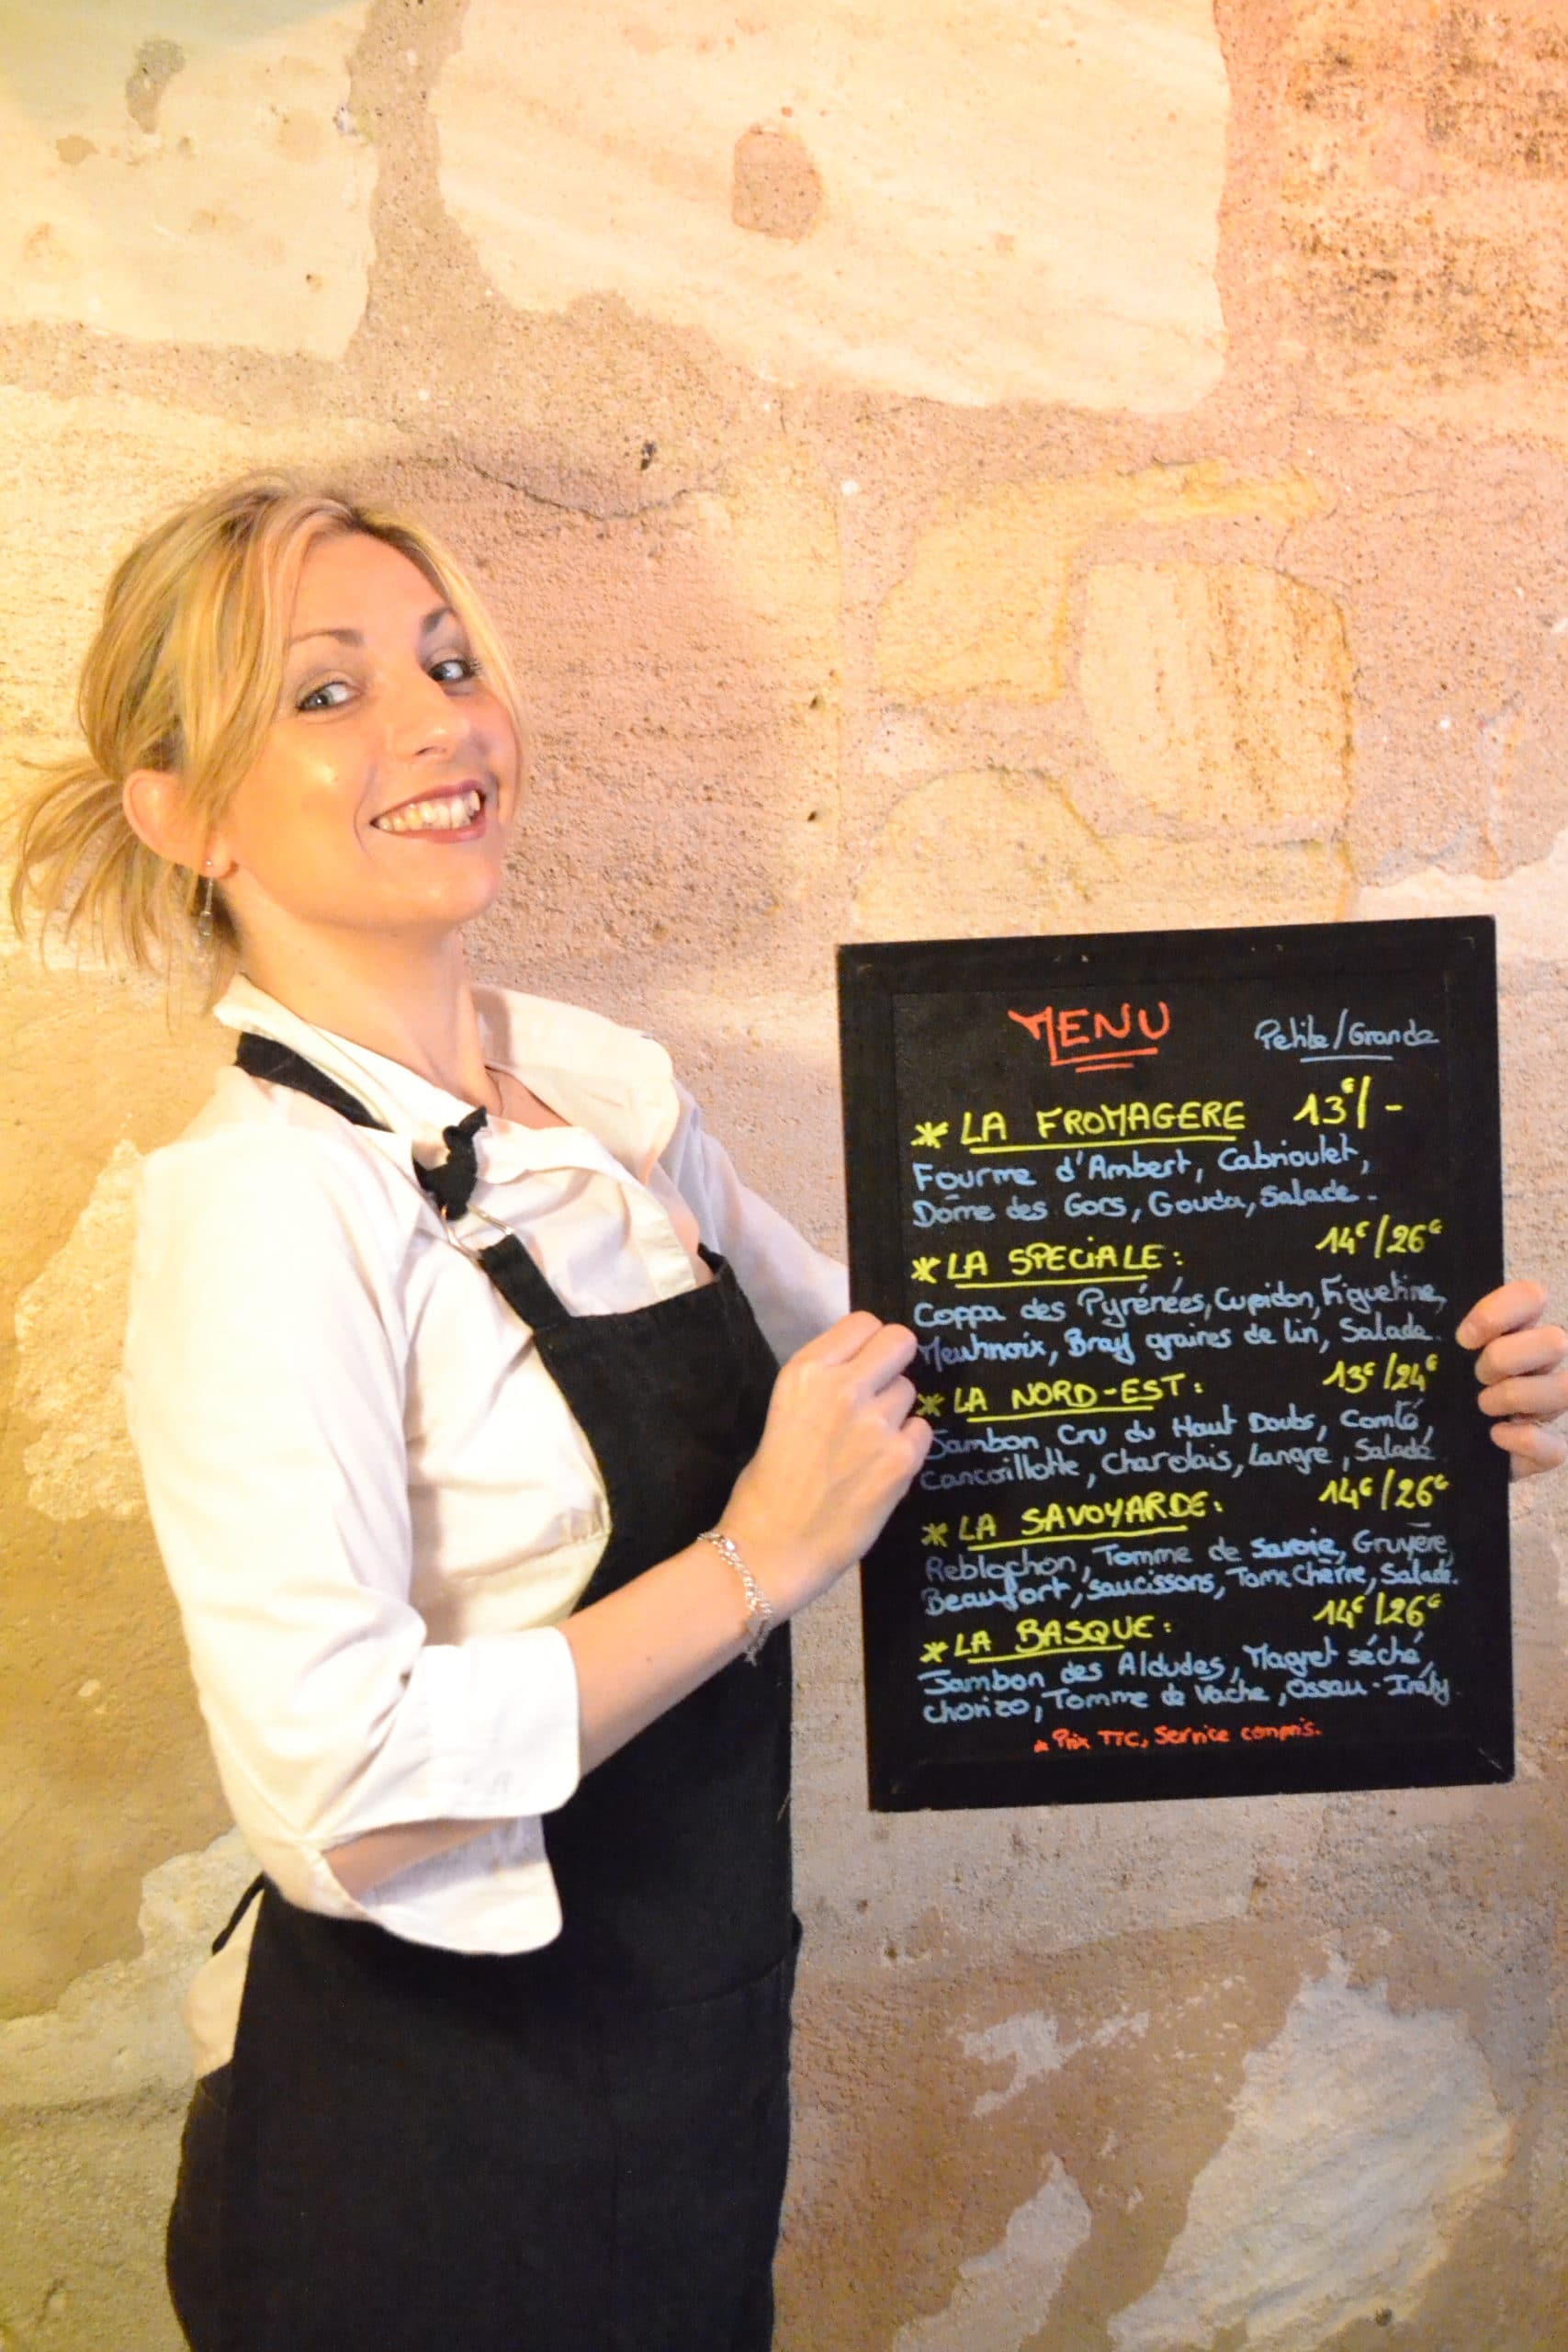 MENU
Petite/Grande
* LA FROMAGERE 13€/-
Fourme d'Ambert, Cabrioulet,
Dôme des Gors, Gouda, Salade.
* LA SPECIALE: 14€/26€
Coppa des Pyrénées, Cupidon, Figuetine,
Meuhnoix, Bray graines de lin, Salade.
* LA NORD-EST: 13€/24€
Jambon Cru du Haut Doubs, Comté,
Cancoillotte, Charolais, Langre, Salade
* LA SAVOYARDE: 14€/26€
Reblochon, Tomme de Savoie, Gruyère,
Beaufort, saucissons, Tome Chèvre, Salade.
* LA BASQUE: 14€/26€
Jambon des Aldudes, Magret séché,
chorizo, Tomme de Vache, Ossau-Iraty.
* Prix TTC, Service compris.